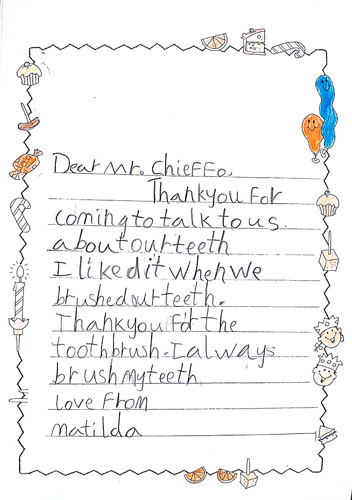 Dear Mr. Chieffo.
Thankyou For
coming to talk to us.
about our teeth
I liked it when we
brushed our teeth.
Thankyou For the
toothbrush. I always
brush my teeth
love From
matilda